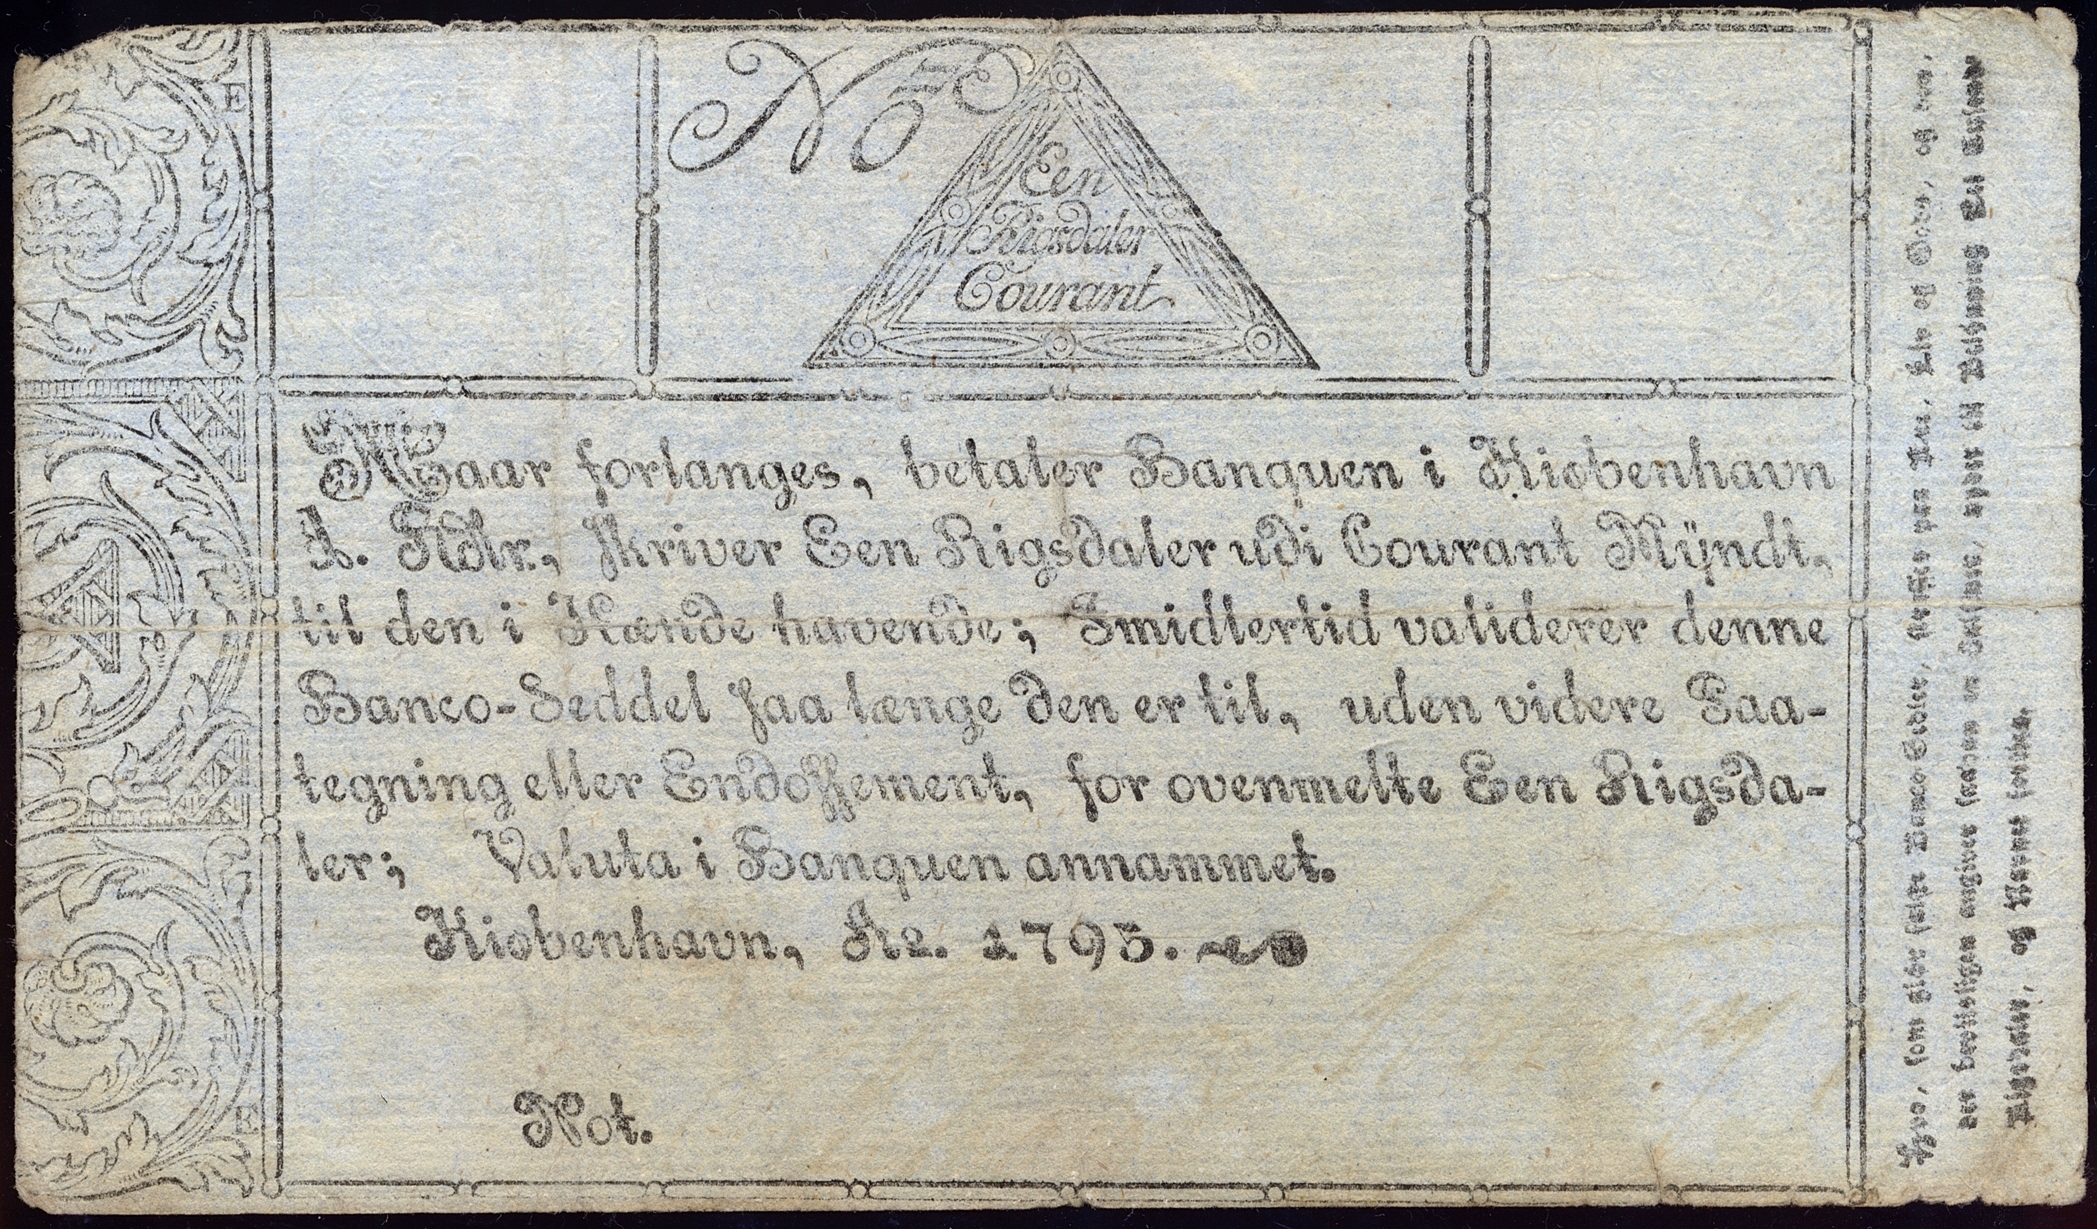 No
Een
Rigsdaler
Courant
Naar forlanges, betaler Banquen i Kiøbenhavn
1. Rdlr., skriver Een Rigsdaler udi Courant Mÿndt,
til den i Hænde havende; Imidlertid validerer denne
Banco-Seddel saa længe den er til, uden videre Paa-
tegning eller Endossement, for ovenmelte Een Rigsda-
ler; Valuta i Banquen annammet.
Kiøbenhavn, Ao. 1795.
Not.
E
E
Hvo, som giør falske Banco-Sedler, straffes paa Ære, Liv og Gods, og den,
der beviisligen angiver saadan en Falskner, haver til Belønning Et tusinde
Rigsdaler, og Navnet forties.